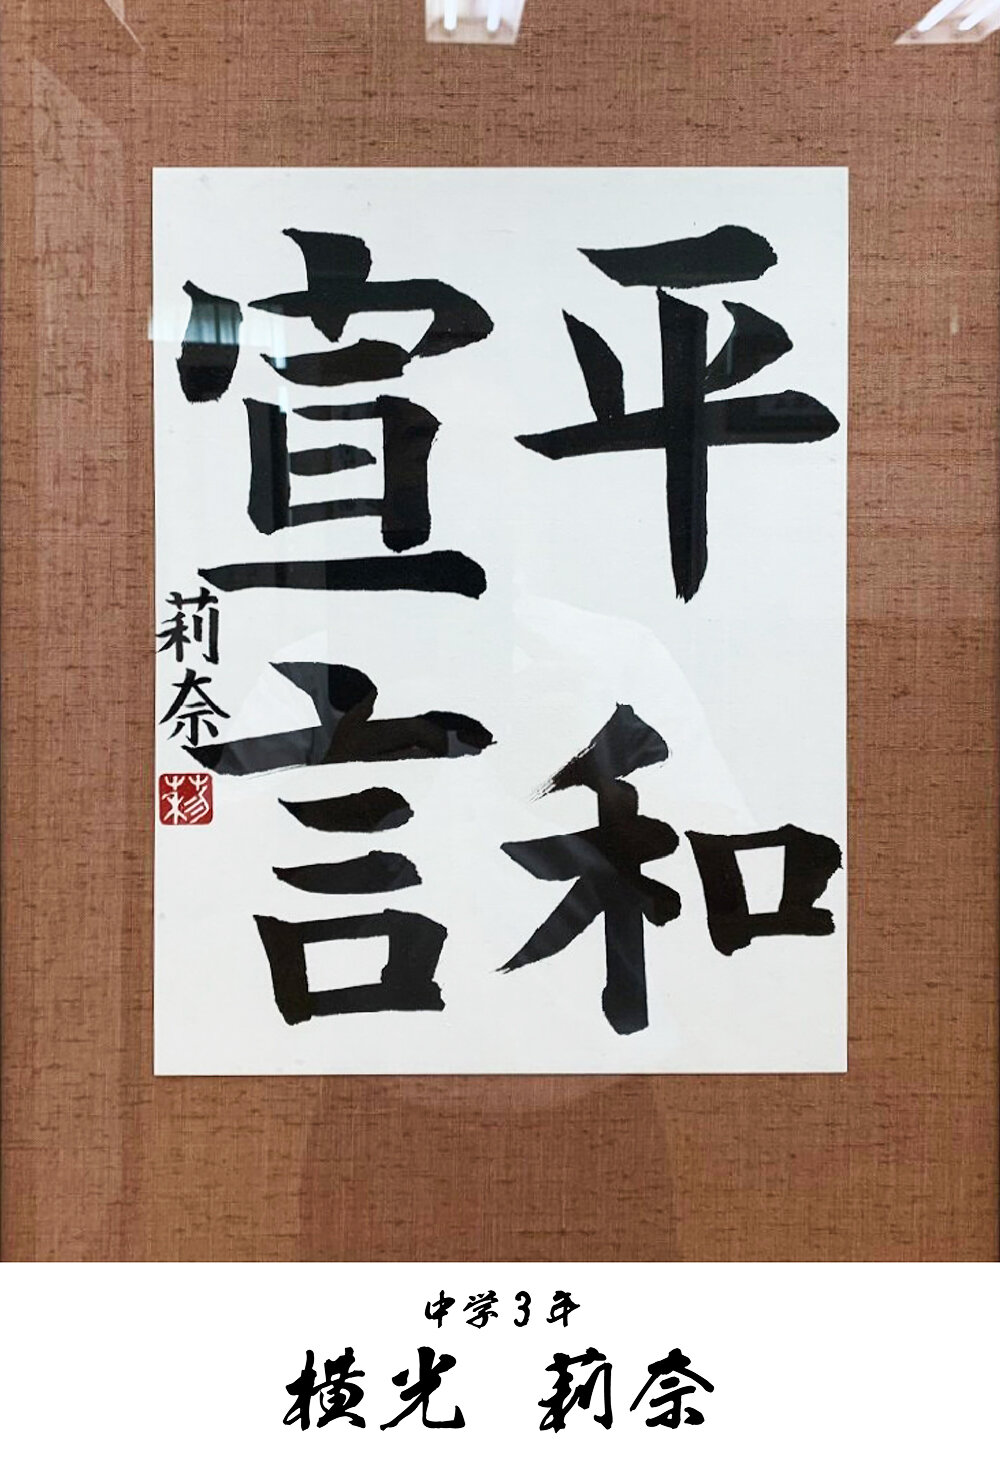 平和
宣言
莉奈
中学3年
横光 莉奈